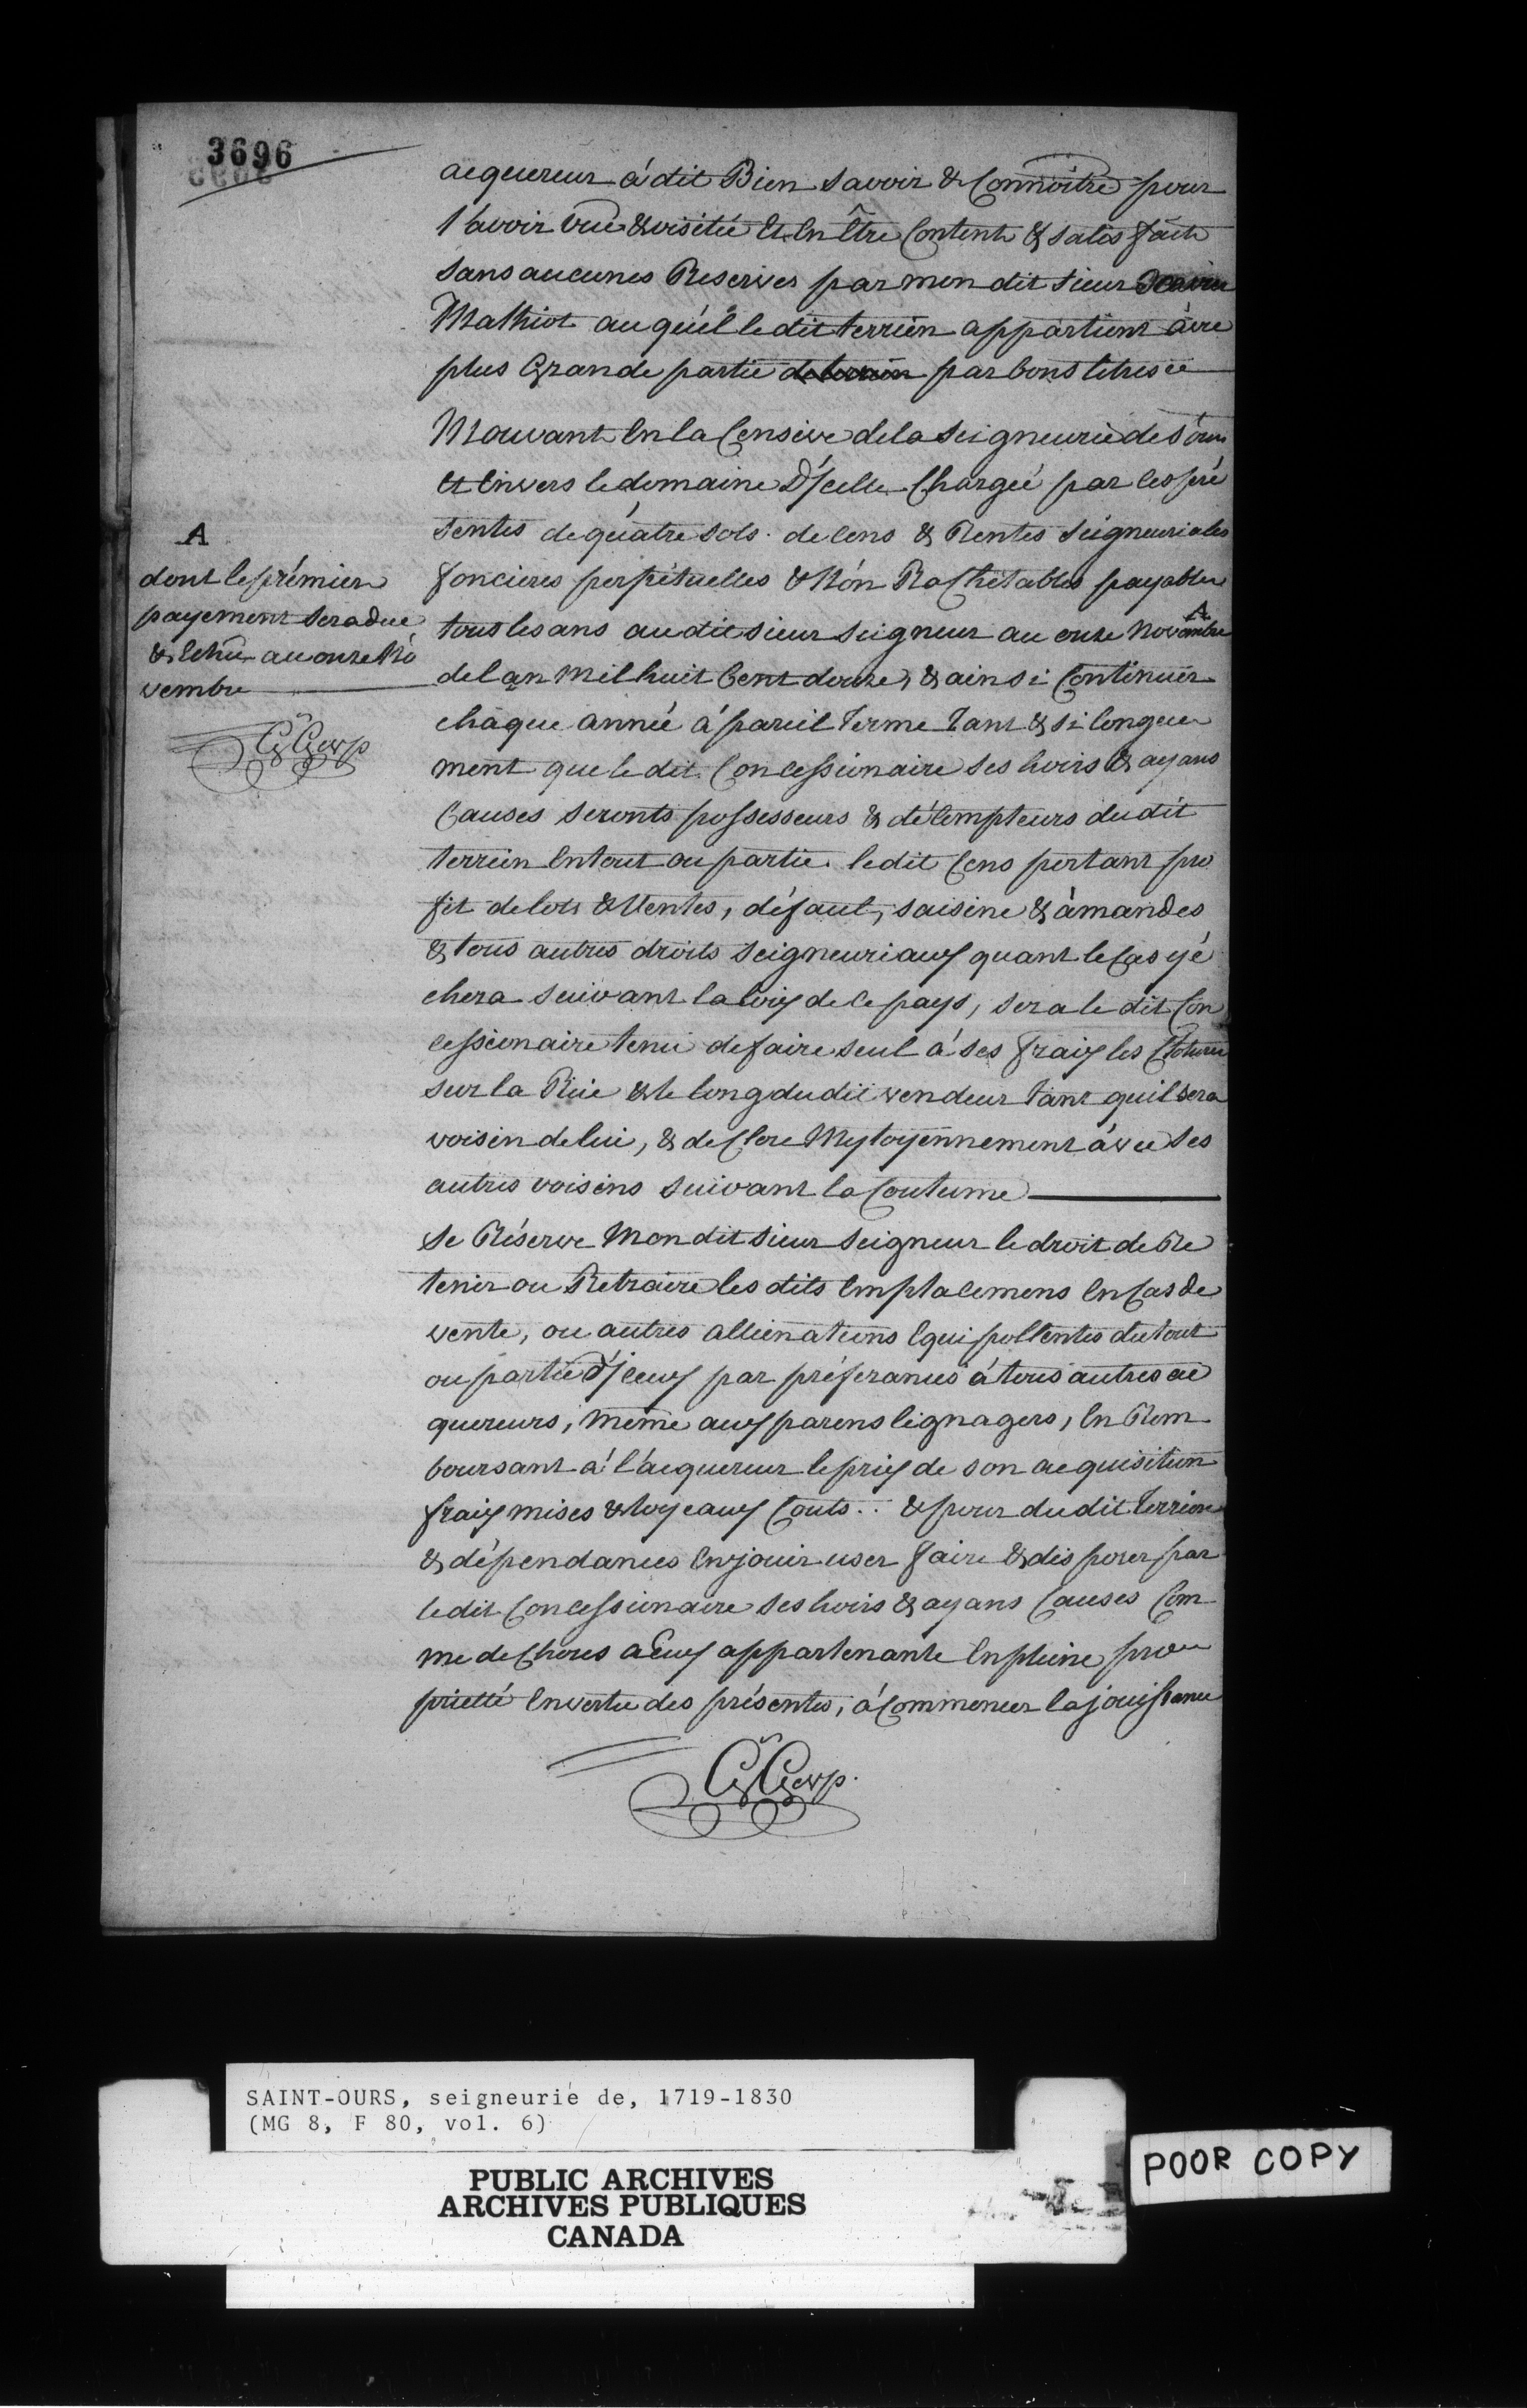 3696
acquereur à dit Bien savoir & Connoitre pour
l'avoir vue & visitée Et En Être Content & satisfait
sans aucunes Reserves par mon dit sieur
Mathiot auquéil le dit terrein appartient à
plus Grande partie de terrein par bons titres &
Mouvant En la Censive de la Seigneurie de St ours
Et Envers le domaine D'Jcelle Chargée par les pré
sentes de quatre sols de Cens & Rentes Seigneuriales
foncieres perpétuelles & Nón Rachétables payables
tous les ans au dit sieur Seigneur au onze Novembre
A
de l'an Mil huit Cent douze, & ainsi Continuér
chaque année á pareil terme tant & si longue
ment que le dit Concessionaire ses hoirs & ayans
Causes seronts possesseurs & détempteurs du dit
terrein En tout ou partie. le dit Cens portant pro
fit de lots & Ventes, défaut, saisine & àmandes
& tous autres droits Seigneuriaux quant le Cas y é
chera suivant la Loix de Ce pays, sera le dit Con
cessionaire tenu de faire seul á ses fraix les Cloture
sur la Rüe & le long du dit vendeur tant quil sera
voisin de lui, & de Clore Mytoyennement àvec ses
autres voisins suivant la Coutume
Se Réserve Mon dit sieur Seigneur le droit de Re
tenir ou Retraire les dits Emplacemens En Cas de
vente, ou autres alliénations Equipollentes du tout
ou partie d'Jceux par préferances á tous autres ac
quereurs, même aux parens lignagers, En Rem
boursant á l'acquereur le prix de son acquisition
fraix mises & loyeaux Couts.. & pour du dit Terrein
& dépendances En jouir user faire & disposer par
le dit Concessionaire ses hoirs & ayans Causes Com
me de Choses a Eux appartenante En pleine pro
priètté En vertu des présentes, á Commencer la jouissance
A
dont le prémier
payement sera due
& Echu au onze No
vembre
SAINT-OURS, seigneurie de, 1719-1830
(MG 8, F 80, vol. 6)
PUBLIC ARCHIVES
ARCHIVES PUBLIQUES
CANADA
POOR COPY